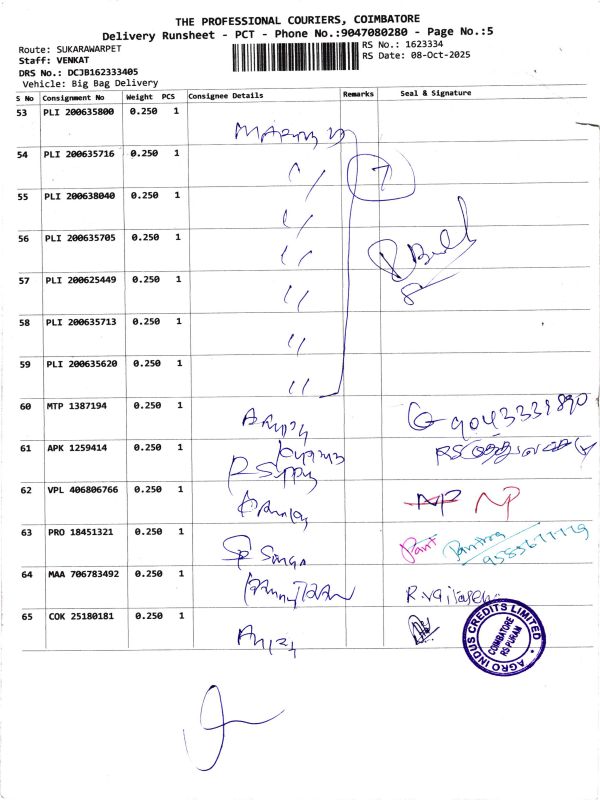 THE PROFESSIONAL COURIERS, COIMBATORE
Delivery Runsheet - PCT - Phone No.:9047080280 - Page No.:5
Route: SUKARAWARPET
RS No.: 1623334
Staff: VENKAT
RS Date: 08-Oct-2025
DRS No.: DCJB162333405
Vehicle: Big Bag Delivery
S No Consignment No Weight PCS Consignee Details Remarks Seal & Signature
53 PLI 200635800 0.250 1
54 PLI 200635716 0.250 1 " 7
55 PLI 200638040 0.250 1 "
56 PLI 200635705 0.250 1 "
57 PLI 200625449 0.250 1 "
58 PLI 200635713 0.250 1 "
59 PLI 200635620 0.250 1 "
60 MTP 1387194 0.250 1 9043331890
61 APK 1259414 0.250 1
62 VPL 406806766 0.250 1 NP NP
63 PRO 18451321 0.250 1
64 MAA 706783492 0.250 1
65 COK 25180181 0.250 1
AGRO INDUS CREDITS LIMITED
COIMBATORE
RS PURAM